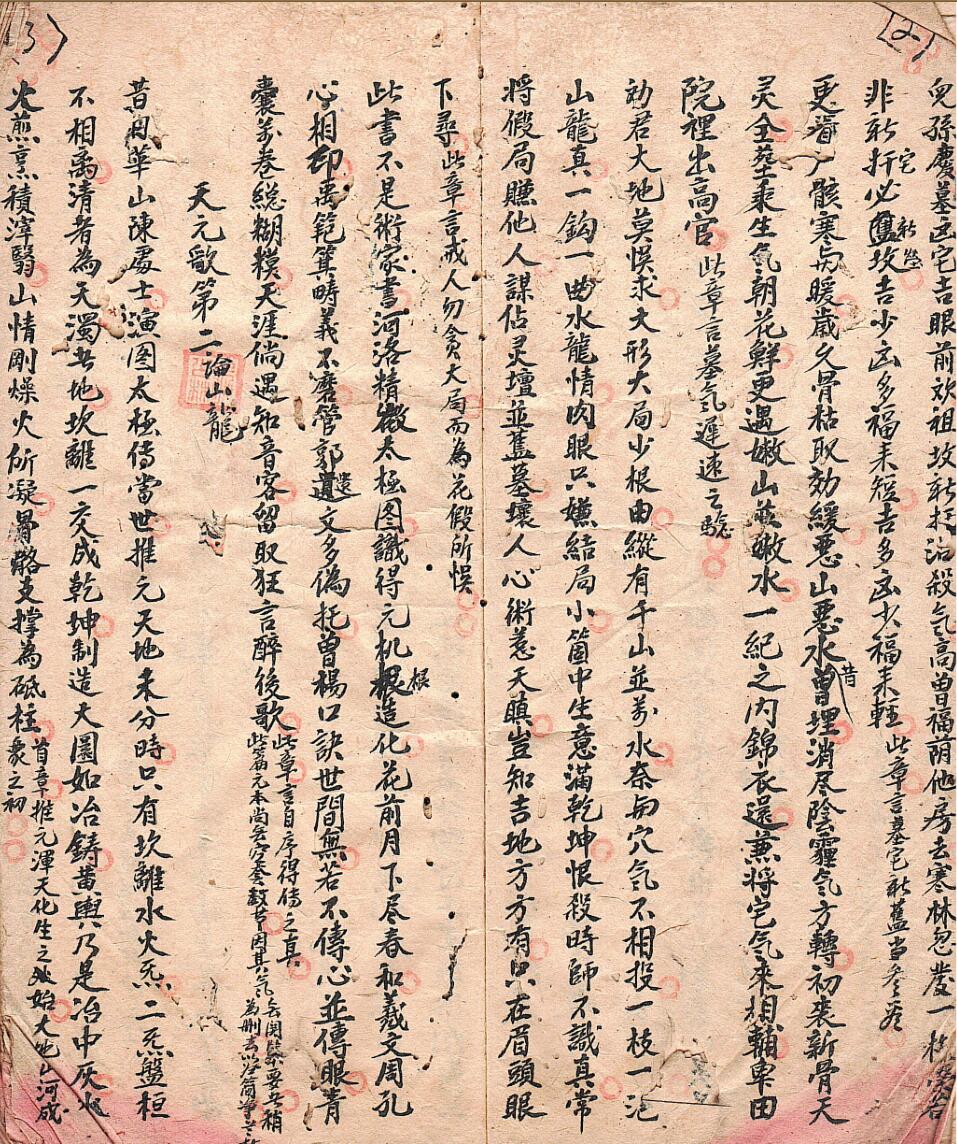 (2)
兒孫慶墓凶宅吉眼前欢祖坟新打治殺气高曾福荫他房去寒林忽發一枝荣若
非新扦必舊坟吉少凶多福来短吉多凶少福来軽此章言墓宅新舊当参看
宅 新
更看尸骸寒与暖歲久骨枯取効緩悪山悪水曾埋消尽陰霾气方轉初装新骨天
昔
灵全葬乘生气朝花鮮更遇嫩山並嫩水一紀之内錦衣还兼將宅气来相輔卑田
院裡出高官此章言墓气遲速之驗
劝君大地莫悞求大形大局少根由縱有千山並万水奈与穴气不相投一枝一泡
山龍真一鈎一曲水龍情肉眼只嫌結局小箇中生意滿乾坤恨殺時師不識真常
將假局賺他人謀佔灵壇並舊墓壞人心術惹天瞋豈知吉地方方有只在眉頭眼
下尋此章言戒人勿貪大局而為花假所悞
此書不是術家書河洛精微太極图識得元机造化花前月下尽春和羲文周孔
根
心相印禹範箕疇義不磨管郭遺文多偽托曾楊口訣世間無若不傳心並傳眼青
囊萬卷総糊糢天涯倘遇知音客留取狂言醉後歌此章言自序得传之真
此篇元本尚
天元歌第二論山龍
(3)
昔日華山陳處士演图太極传當世推元天地未分時只有坎離水火炁二炁盤桓
不相离清者為天濁者地坎離一交成乾坤制造大圜如冶鋳黄輿乃是冶中灰水
火煎烹積滓翳山情剛燥火所凝骨骼支撑為砥柱首章推元渾天化生之始大地山河成
象之初